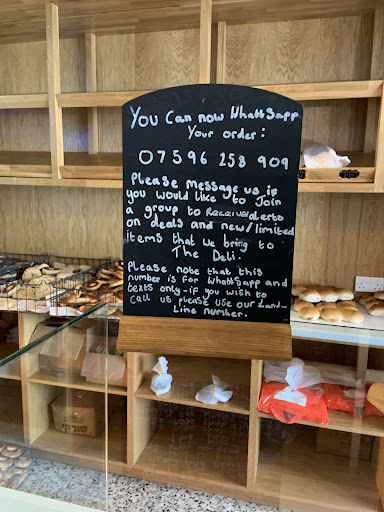 You Can now WhattSapp
Your order:
07596 258 909
Please message us if
you would like to Join
a group to Receive alerts
on deals and new/limited
items that we bring to
The Deli.
Please note that this
number is for WhattSapp and
texts only - if you wish to
Call us please use our Land-
Line number.
טורקי